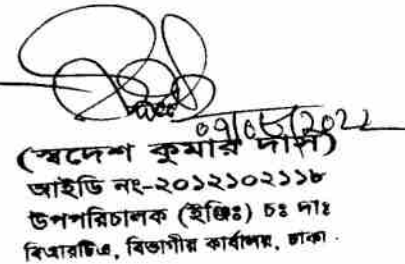 09/05/2022
(স্বদেশ কুমার দাস)
আইডি নং-২০১২১০২১১৮
উপপরিচালক (ইঞ্জিঃ) চঃ দাঃ
বিআরটিএ, বিভাগীয় কার্যালয়, ঢাকা.